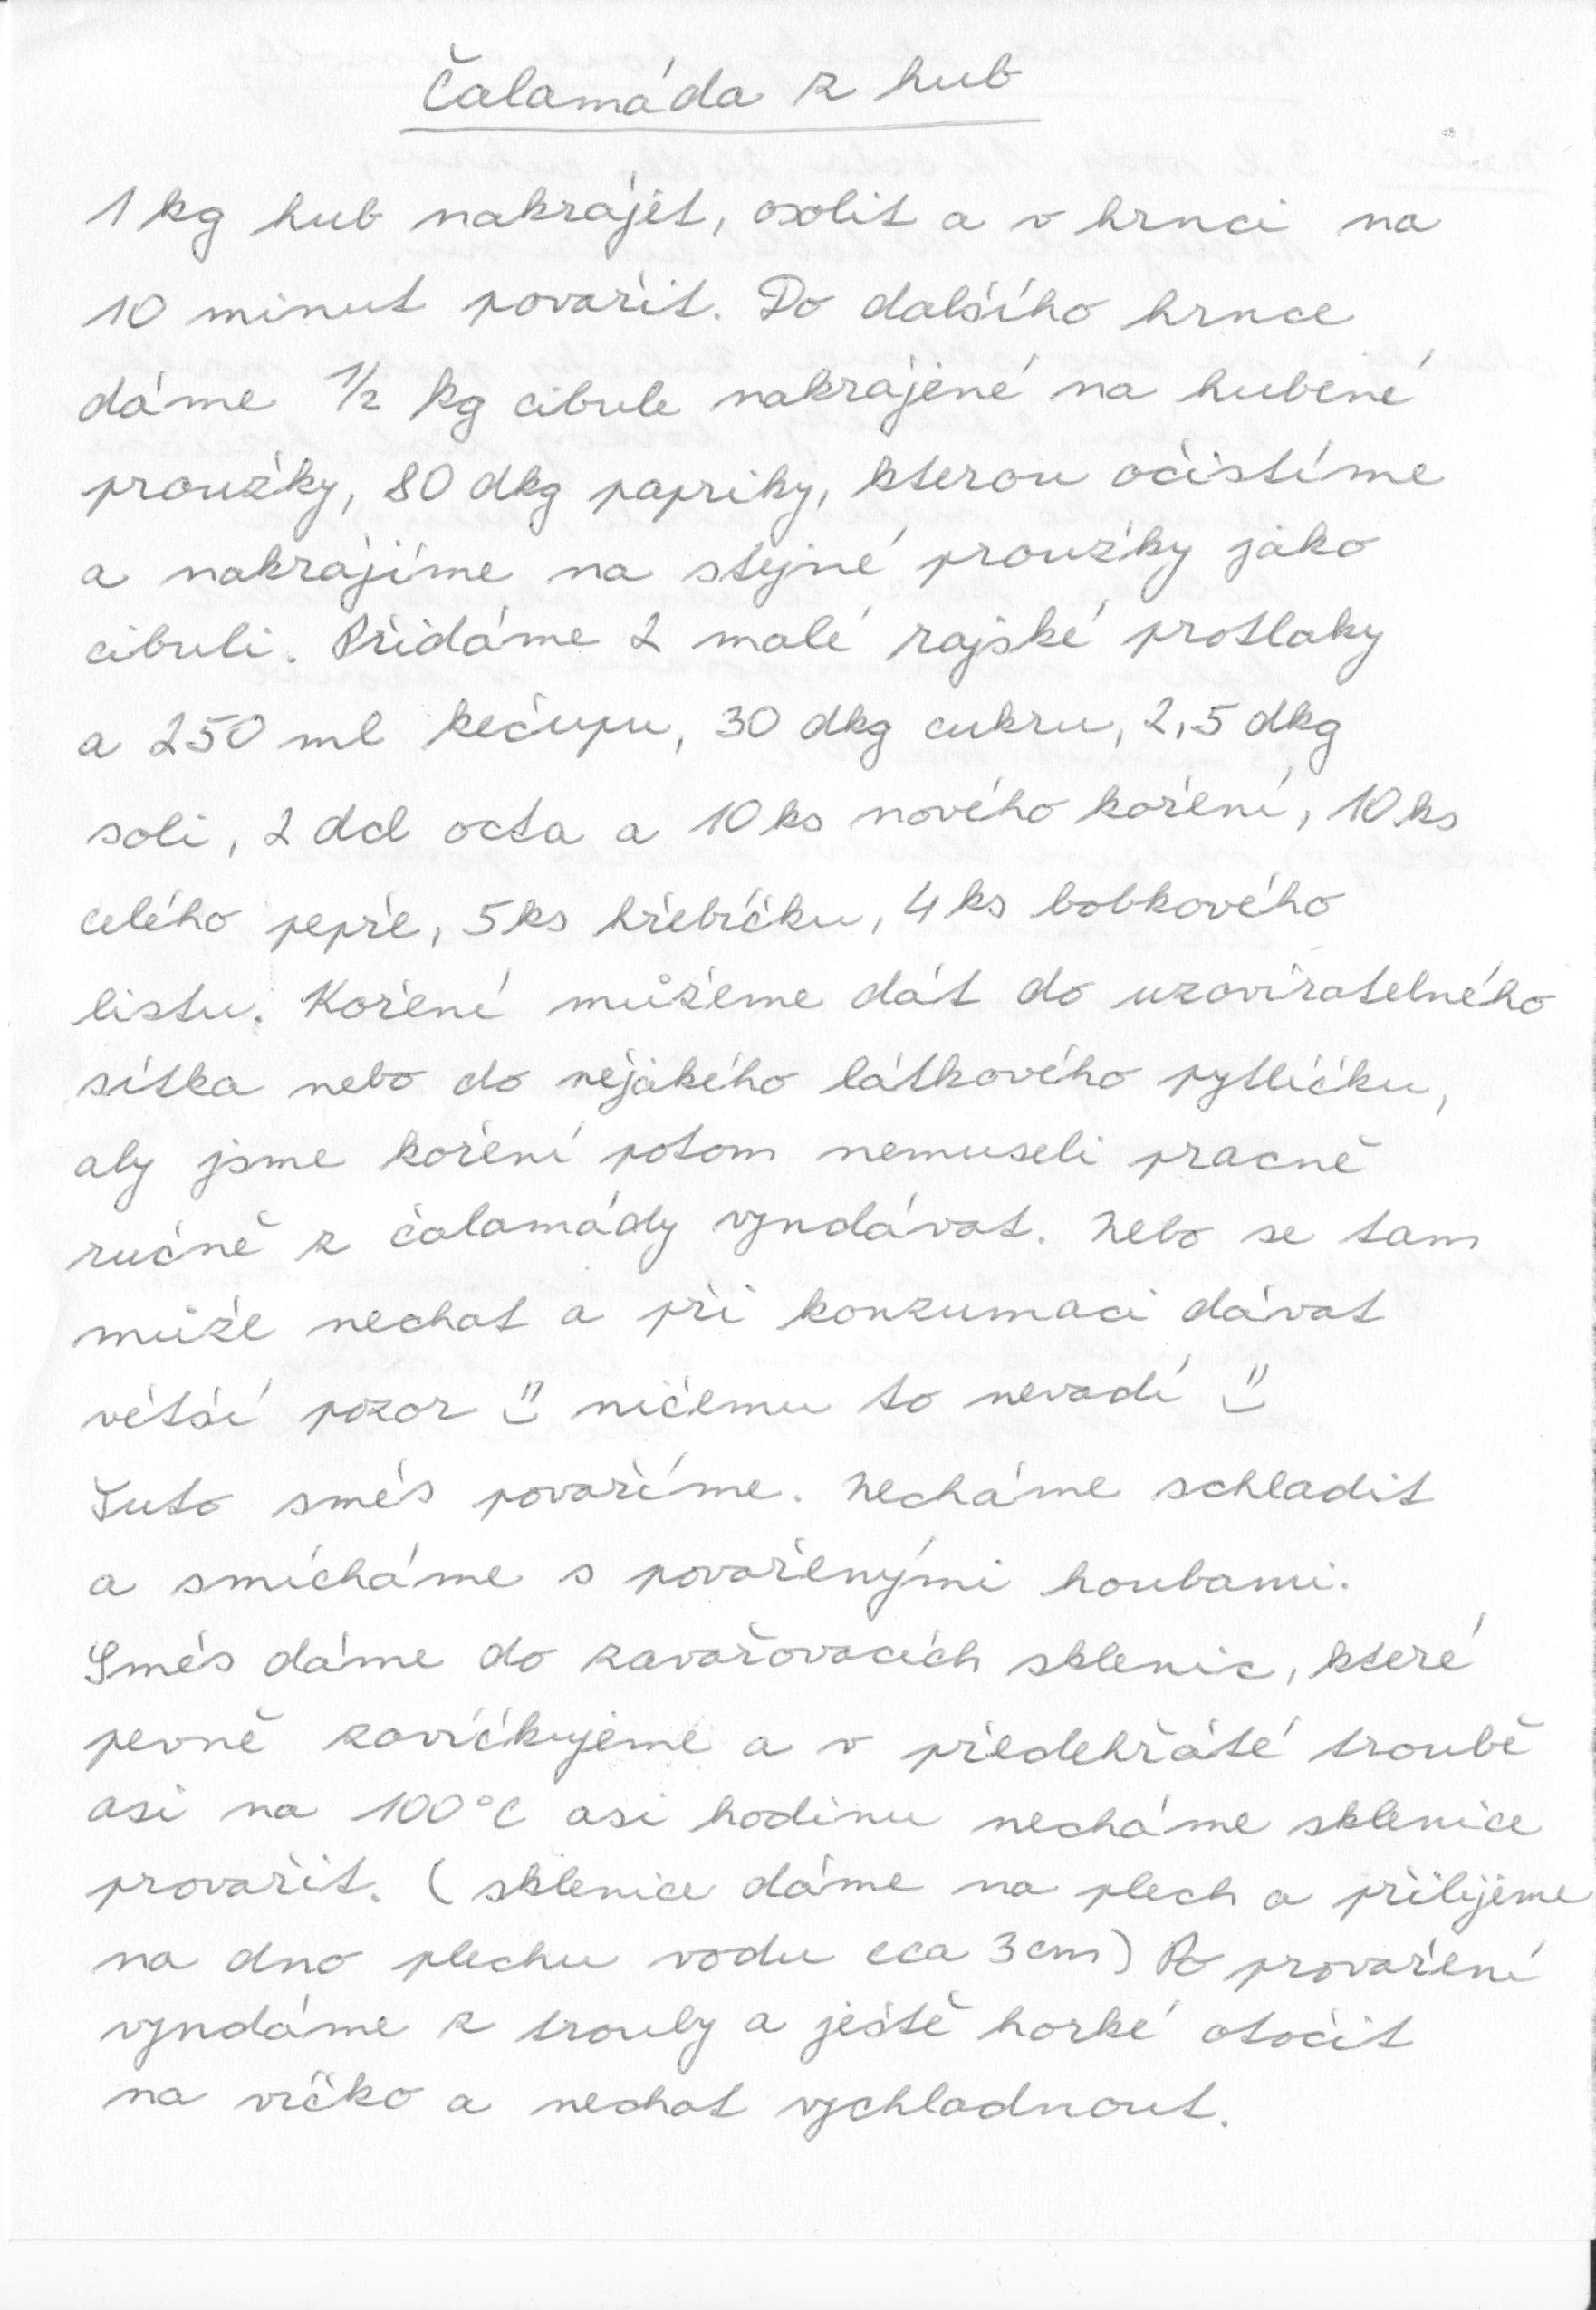 Čalamáda z hub
1 kg hub nakrájet, osolit a v hrnci na
10 minut povařit. Do dalšího hrnce
dáme 1/2 kg cibule nakrájené na hubené
proužky, 80 dkg papriky, kterou očistíme
a nakrájíme na stejné proužky jako
cibuli. Přidáme 2 malé rajské protlaky
a 250 ml kečupu, 30 dkg cukru, 2,5 dkg
soli, 2 dcl octa a 10 ks nového koření, 10 ks
celého pepře, 5 ks hřebíčku, 4 ks bobkového
listu. Koření můžeme dát do uzavíratelného
sítka nebo do nějakého látkového pytlíčku,
aby jsme koření potom nemuseli pracně
ručně z čalamády vyndávat. Nebo se tam
může nechat a při konzumaci dávat
větší pozor ü ničemu to nevadí ü
Tuto směs povaříme. Necháme schladit
a smícháme s povařenými houbami.
Směs dáme do zavařovacích sklenic, které
pevně zavíčkujeme a v předehřáté troubě
asi na 100°C asi hodinu necháme sklenice
provařit. (sklenice dáme na plech a přilijeme
na dno plechu vodu cca 3 cm) Po provaření
vyndáme z trouby a ještě horké otočit
na víčko a nechat vychladnout.